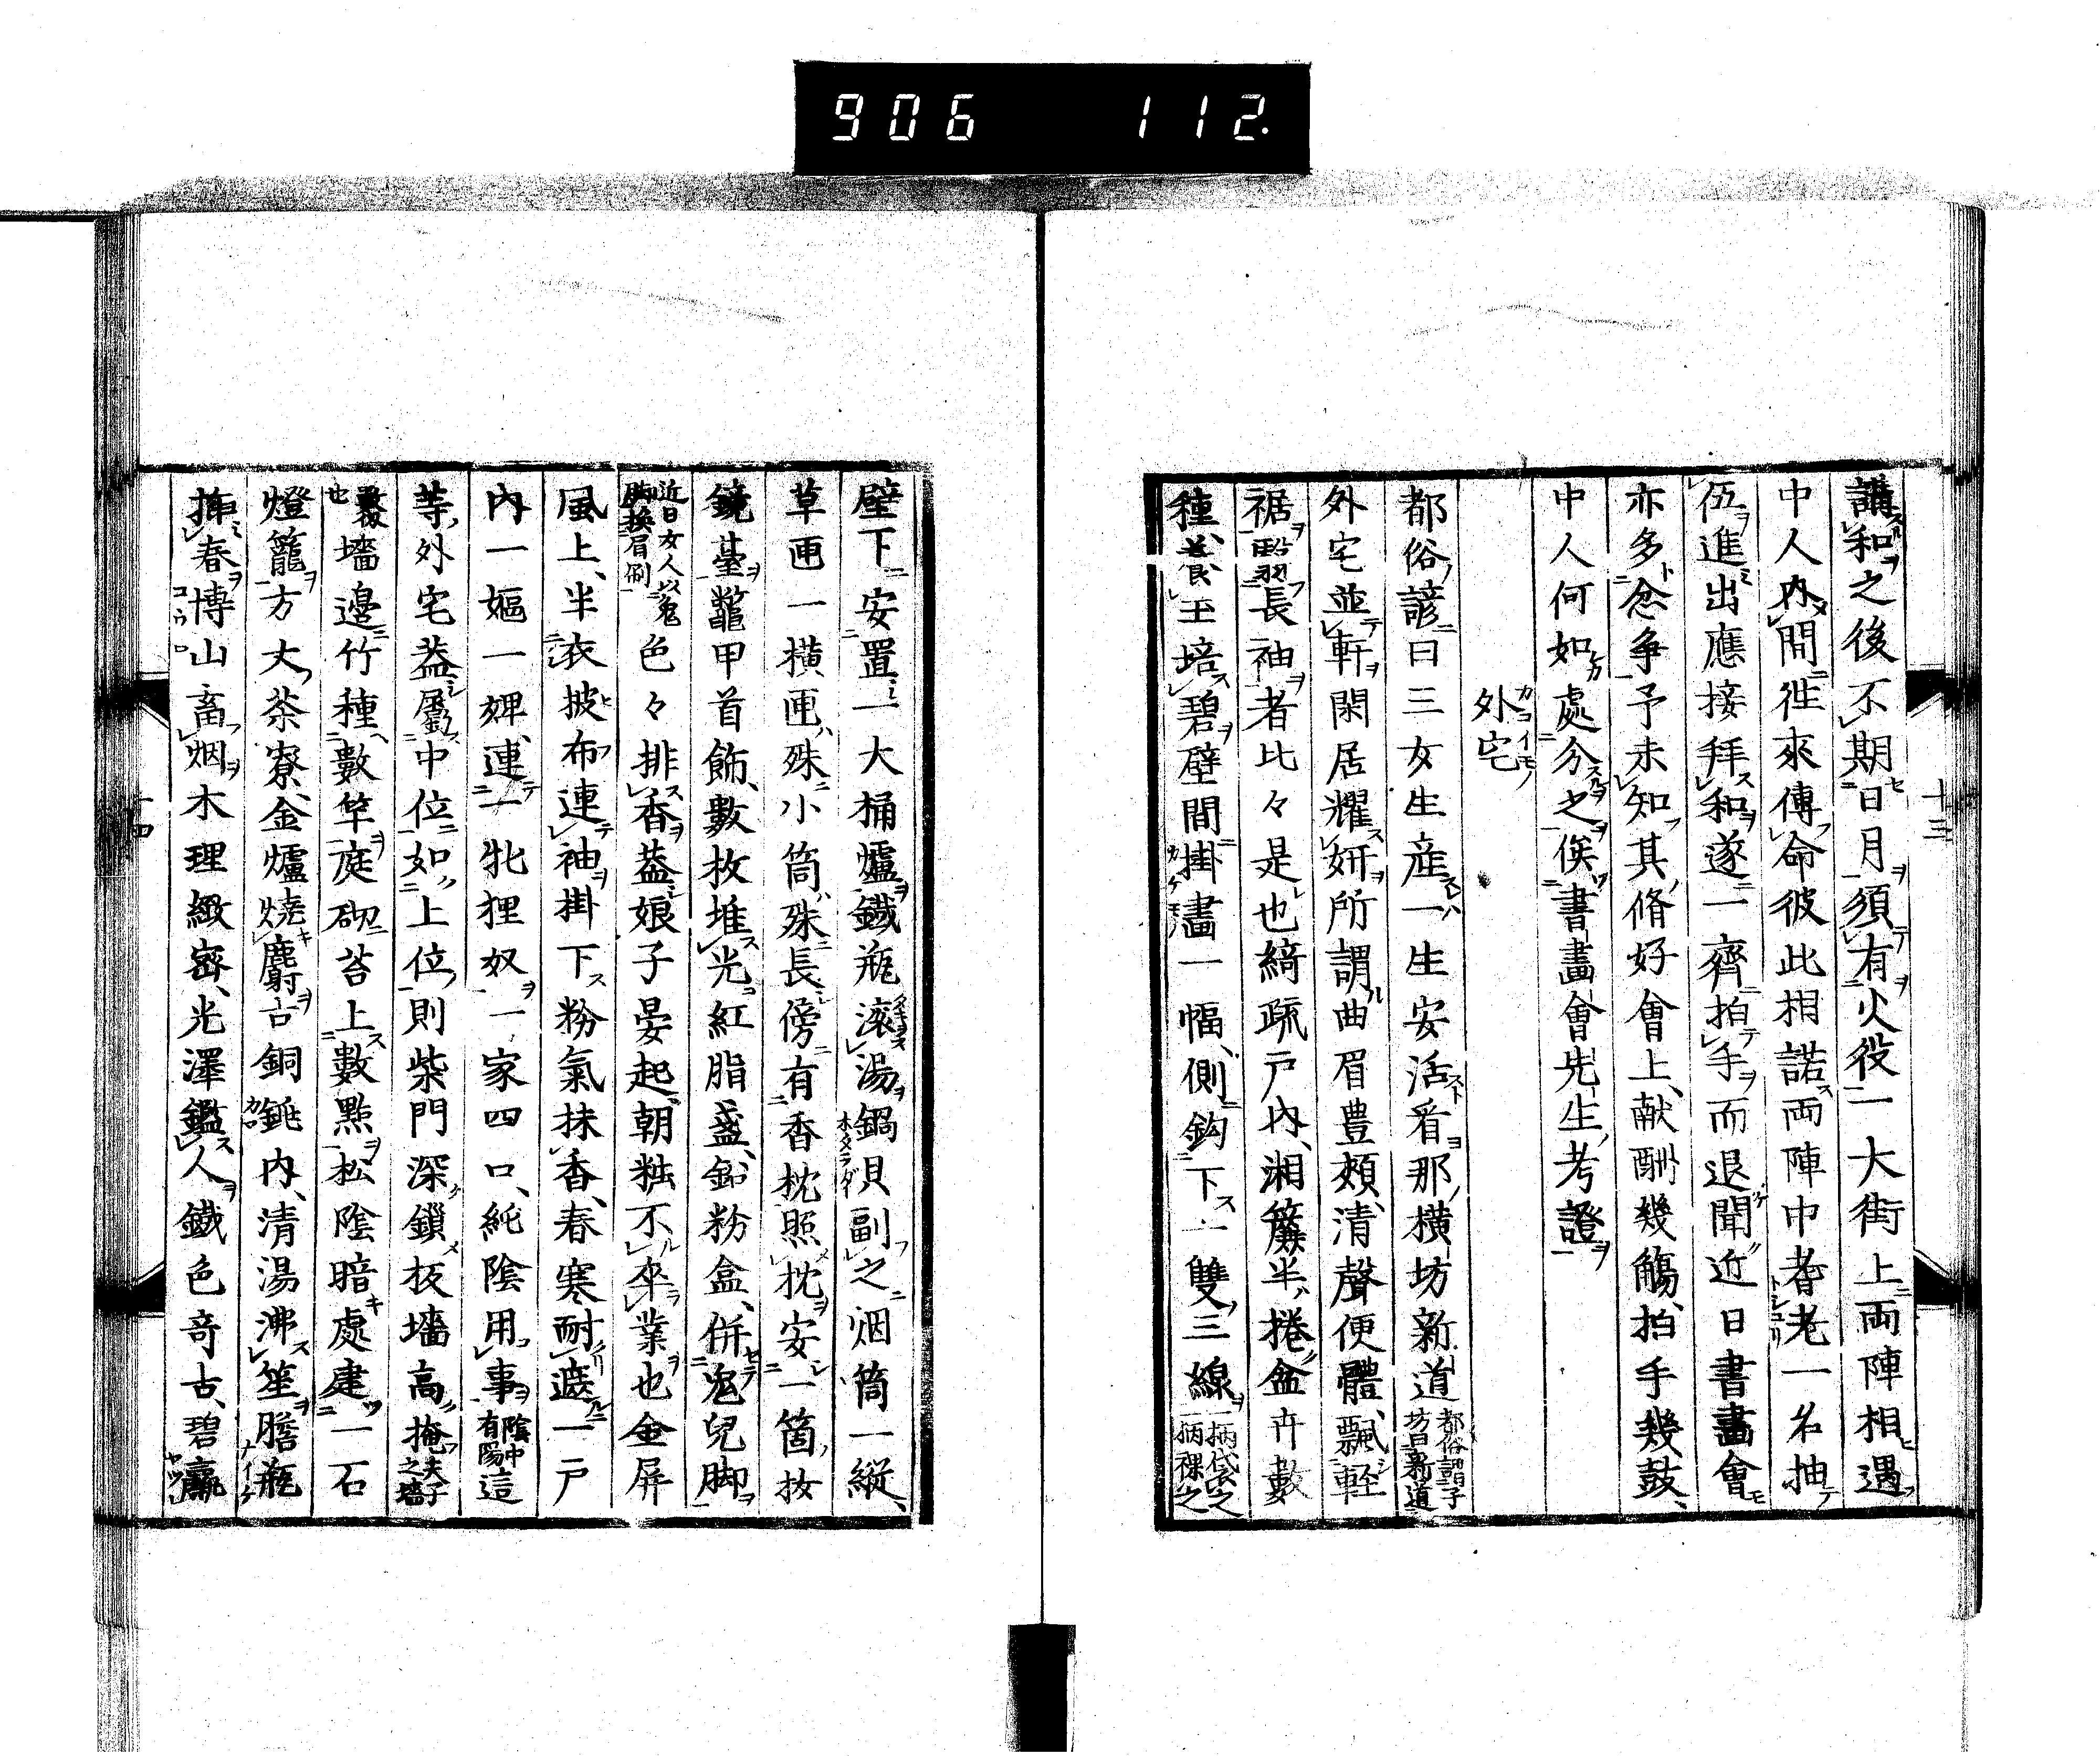 906 112.
十三
講和之後不期日月須有火役一大街上両陣相遇
中人內間往來傳命彼此相諾両陣中耆老一名抽
伍進出應接拜和遂一齊拍手而退聞近日書畫會
亦多忿争予未知其脩好會上、献酬幾觴、拍手幾鼓、
中人何如處分之俟書畫會先生考證
外宅
都俗諺曰三女生産一生安活看那橫坊新道都俗謂子坊曰新道
外宅並軒閑居耀妍所謂曲眉豊頰、清聲便體、飄輕
裾翳長袖者比々是也綺疏戸內、湘簾半捲盆卉數
種、養玉培碧壁間掛畵一幅、側鈎下一雙三線一柄袋之一柄裸之
壁下安置一大桶爐鐵瓶滚湯鍋貝副之烟筒一縦、
草匣一横匣殊小筒殊長傍有香枕照枕安一箇妝
鏡臺鼈甲首飾、數枚堆光紅脂盞、鉛粉盒、併兔兒脚
近日女人以兔脚換眉刷色々排香葢娘子晏起、朝粧不卒業也金屏
風上、半衣披布連袖掛下粉氣抹香、春寒耐遮一戸
內一嫗一婢、連一牝狸奴一家四口、純陰用事陰中有陽這
等、外宅葢屬中位如上位則柴門深鎖扳墻高掩夫子之墻
數仭也墻邊竹種數竿庭砌苔上數點松陰暗處建一石
燈籠方大茶寮、金爐燒麝古銅銚內、清湯沸笙膽瓶
插春博山畜烟木理緻密、光澤鑑人鐵色竒古、碧甌
十四